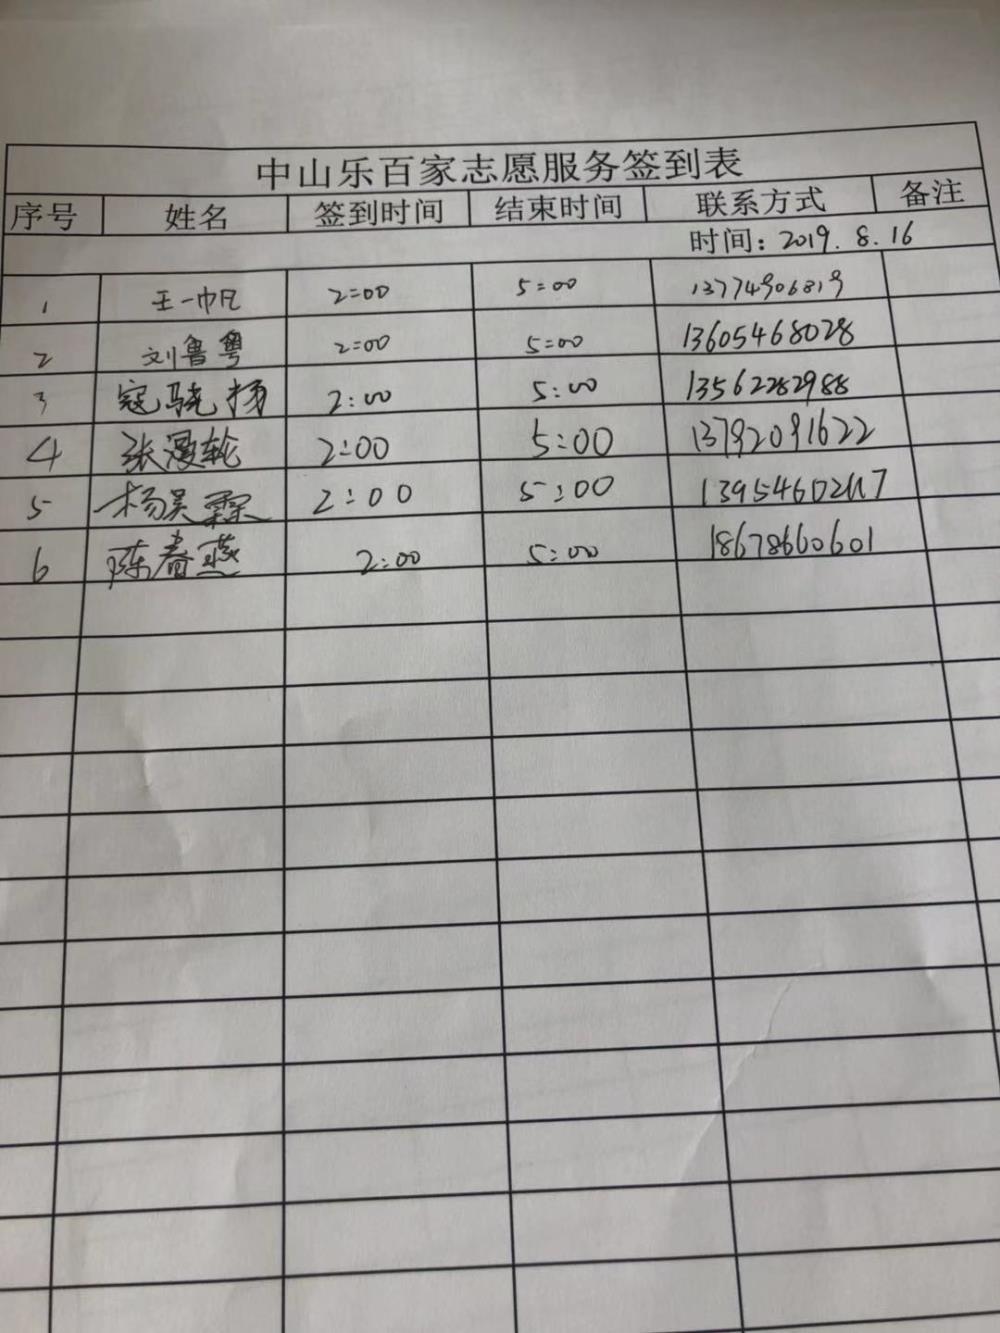 中山乐百家志愿服务签到表
序号 姓名 签到时间 结束时间 联系方式 备注
时间：2019.8.16
1 王一帆 2:00 5:00 13774906819
2 刘鲁粤 2:00 5:00 13605468028
3 寇骁扬 2:00 5:00 13562282988
4 张漫轮 2:00 5:00 13792091622
5 杨昊霖 2:00 5:00
6 陈春燕 2:00 5:00 18678660601